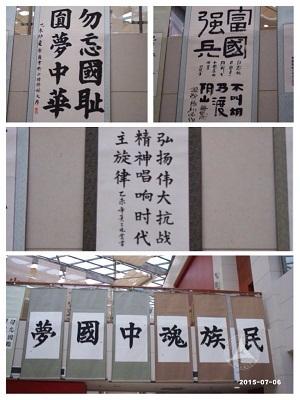 勿忘國耻
圓夢中華
富國
强兵
不叫胡
马渡
阴山
弘扬伟大抗战
精神唱响时代
主旋律
民族魂中國夢
2015-07-06